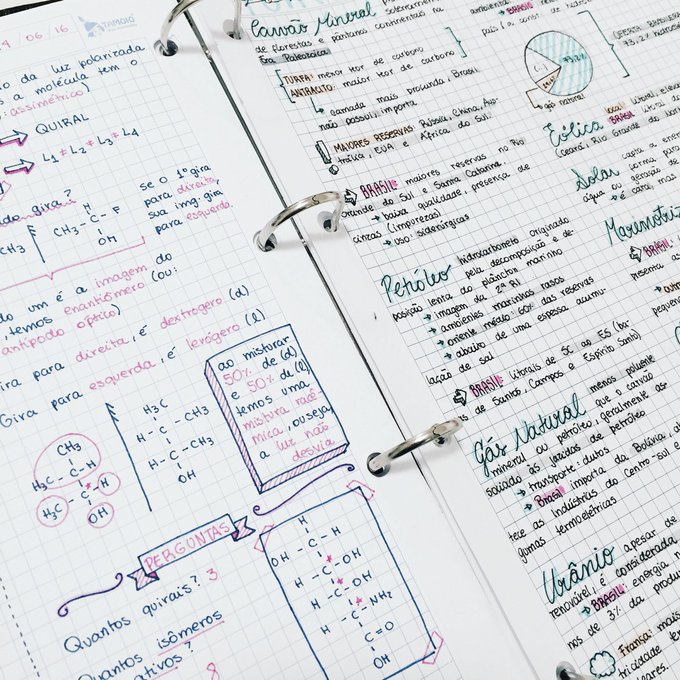 9 / 06 / 16
TAMOIO
da luz polarizada
a molécula tem o
assimétrico)
QUIRAL
L1 ≠ L2 ≠ L3 ≠ L4
gira?
se o 1º gira
para direita,
sua img. gira
para esquerda.
CH3
H
CH3 - C - F
OH
um é a imagem do
, temos enantiômero (ou:
antípodo óptico)
gira para direita, é dextrogero (d)
Gira para esquerda, é levogero (l)
ao misturar
50% de (d)
e 50% de (l),
temos uma
mistura racê-
mica, ou seja,
a luz não
desvia
CH3
H3C - C - H
H3C - C - H
OH
H3C
H - C - CH3
H - C - CH3
OH
PERGUNTAS
Quantos quirais? 3
Quantos isômeros
ativos? 8
H
OH - C - H
H - C - OH
H - C - OH
H - C - NH2
C = O
OH
Carvão Mineral
de florestas e pântanos continentais na
Era Paleozoica
TURFA: menor teor de carbono
ANTRACITO: maior teor de carbono
→ camada mais profunda, Brasil
não possui, importa
! MAIORES RESERVAS: Rússia, China, Aus-
trália, EUA e África do Sul
BRASIL: maiores reservas no Rio
Grande do Sul e Santa Catarina.
→ baixa qualidade, presença de
cinzas (impurezas)
→ uso: siderúrgicas
Petróleo hidrocarboneto originado
pela decomposição e de-
posição lenta do plâncton marinho
→ imagem da 2ª RI
→ ambientes marinhos rasos
→ oriente médio: 60% das reservas
→ abaixo de uma espessa acumu-
lação de sal
BRASIL: litorais de SC ao ES (ba-
ias de Santos, Campos e Espírito Santo)
Gás Natural menos poluente
que o carvão
mineral ou petróleo, geralmente as-
sociado às jazidas de petróleo
→ transporte: dutos
→ Brasil importa da Bolívia,
tece as indústrias do Centro-sul e
gumas termoelétricas
Urânio apesar de
renovável, é considerada
BRASIL: energia n
nos de 3% da produ
França: mais
tricidade
BRASIL
73,2%
gás natural
Eólica local: litoral,
BRASIL: litoral do
(Ceará, Rio Grande do
Solar capta a ener
forma para
água ou geração de
→ é cara,
Maremotriz
BRASIL:
presenta